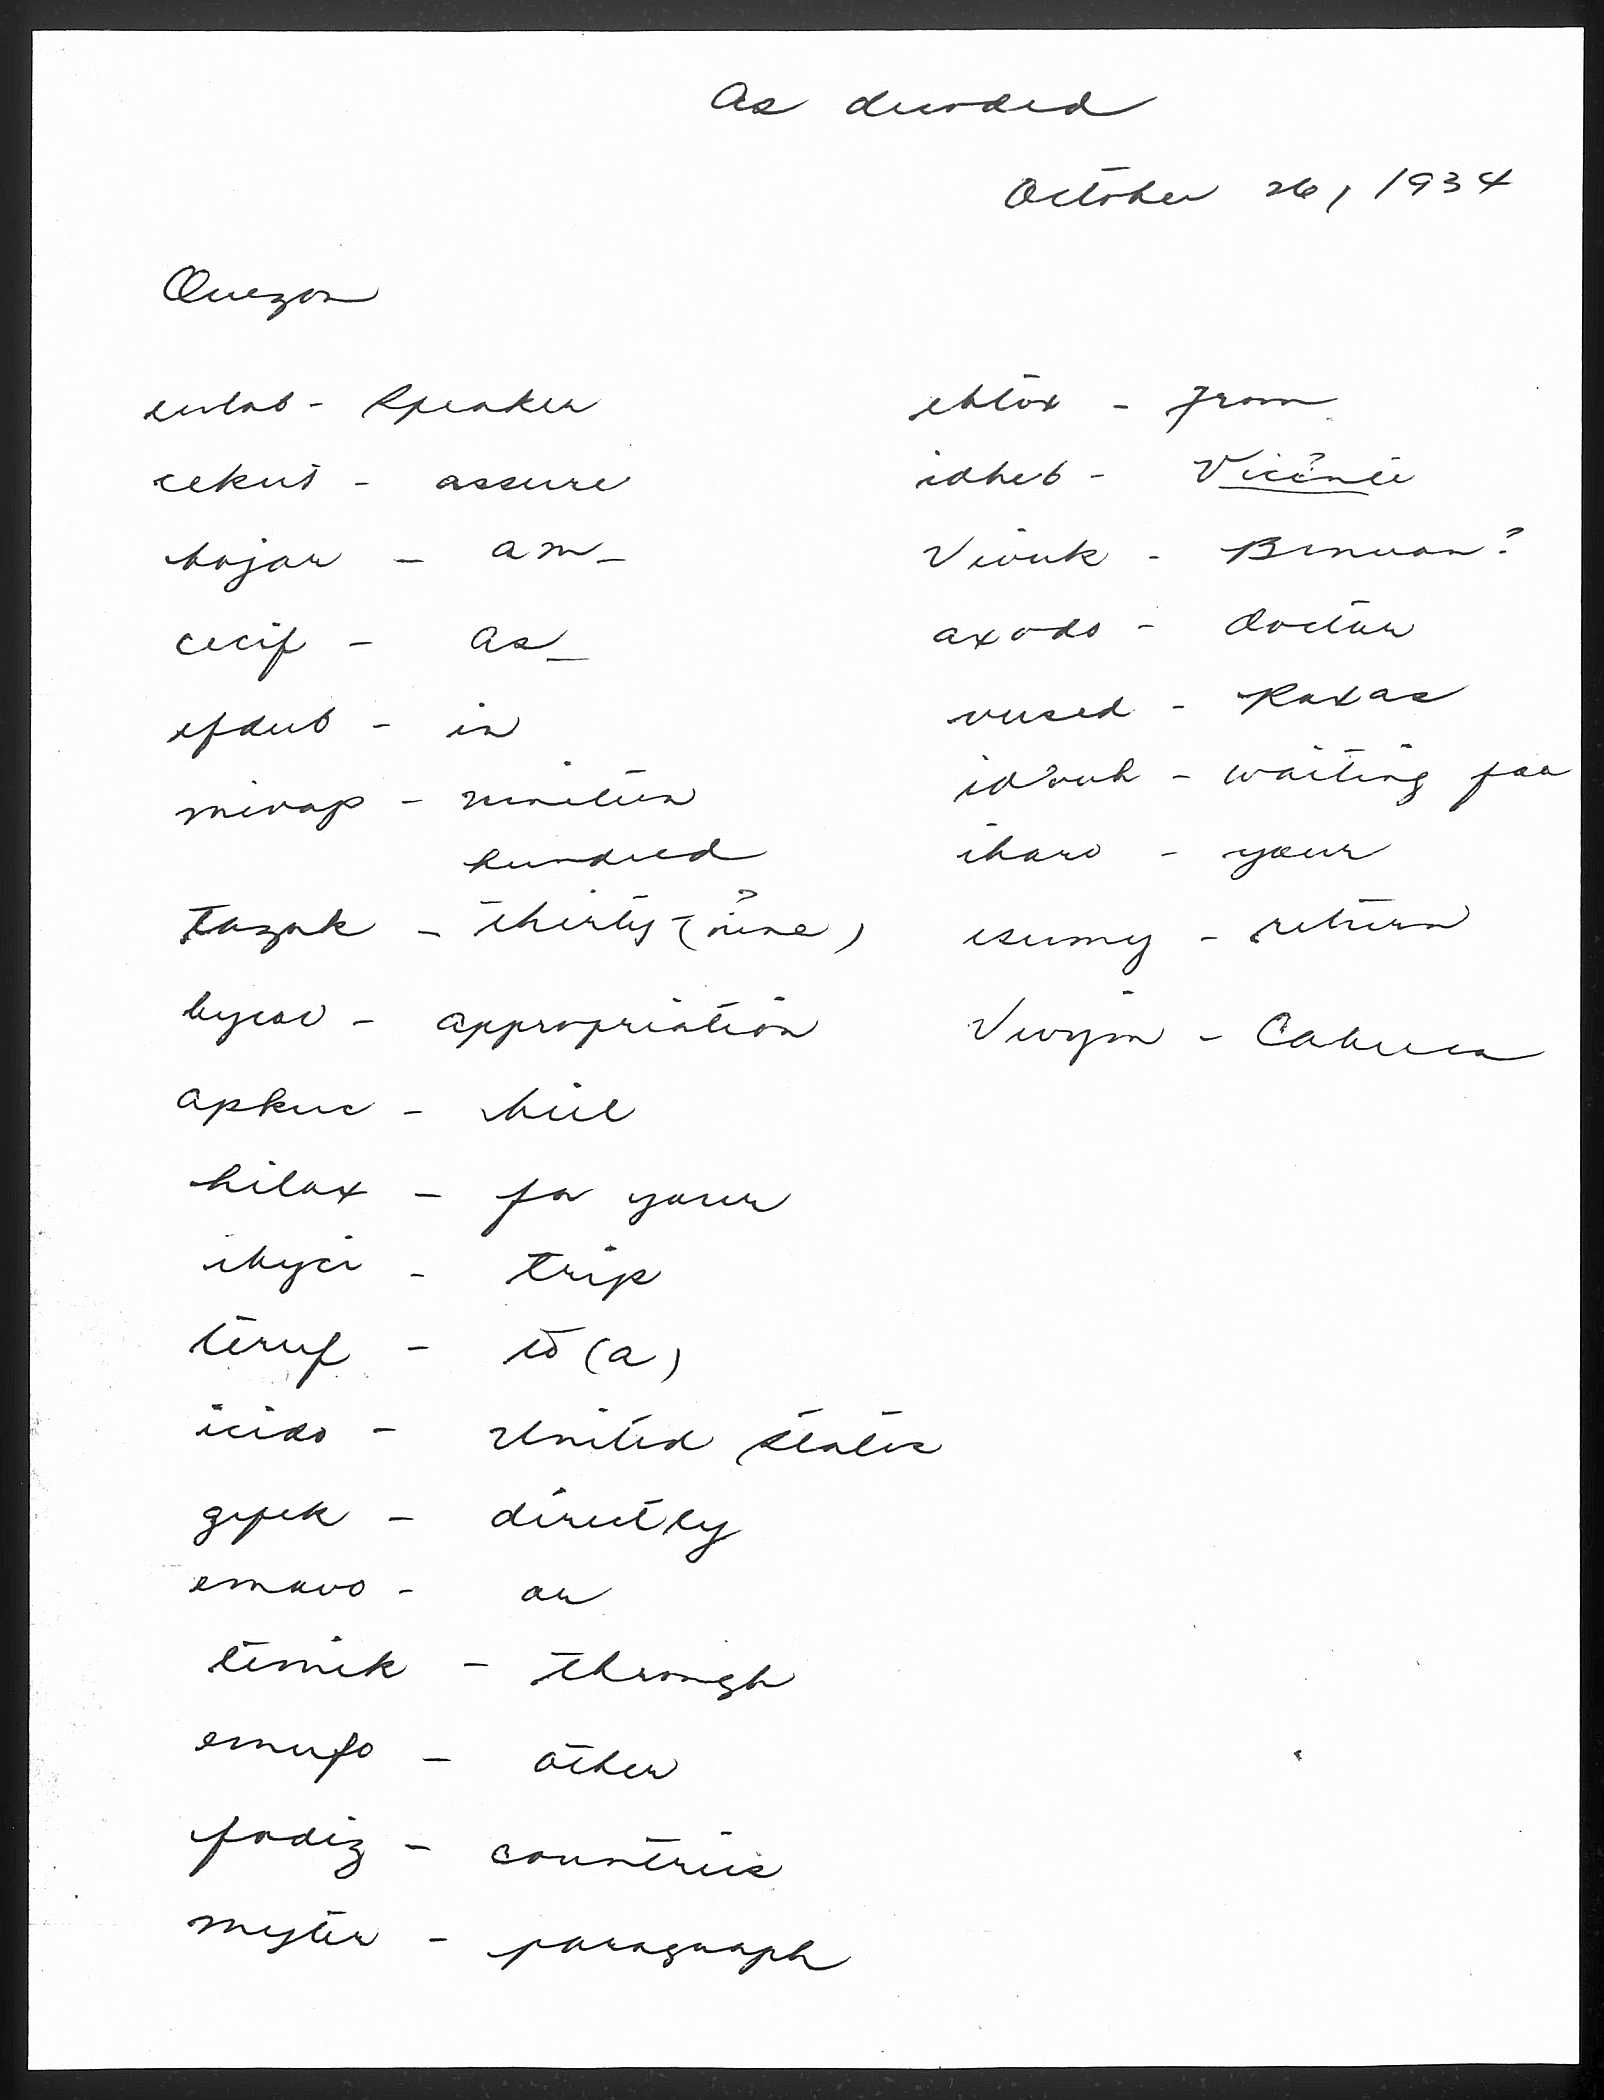 As decoded
October 26, 1934
Quezon
evlab - Speaker
cekut - assure
bojar - am -
cecif - as -
efdub - in
mivap - nineteen
hundred
tazak - thirty - (nine?)
bycav - appropriation
apkuc - bill
hilax - for your
ibyci - trip
teruf - to (a)
icido - United States
gepek - directly
emavo - or
timik - through
emufo - other
fodiz - countries
myter - paragraph
ehtox - from
idheb - Vicente?
Vivuk - Bunuan?
axodo - doctor
vused - Roxas
idvuh - waiting for
iharo - your
esumy - return
Vivym - Cabuca